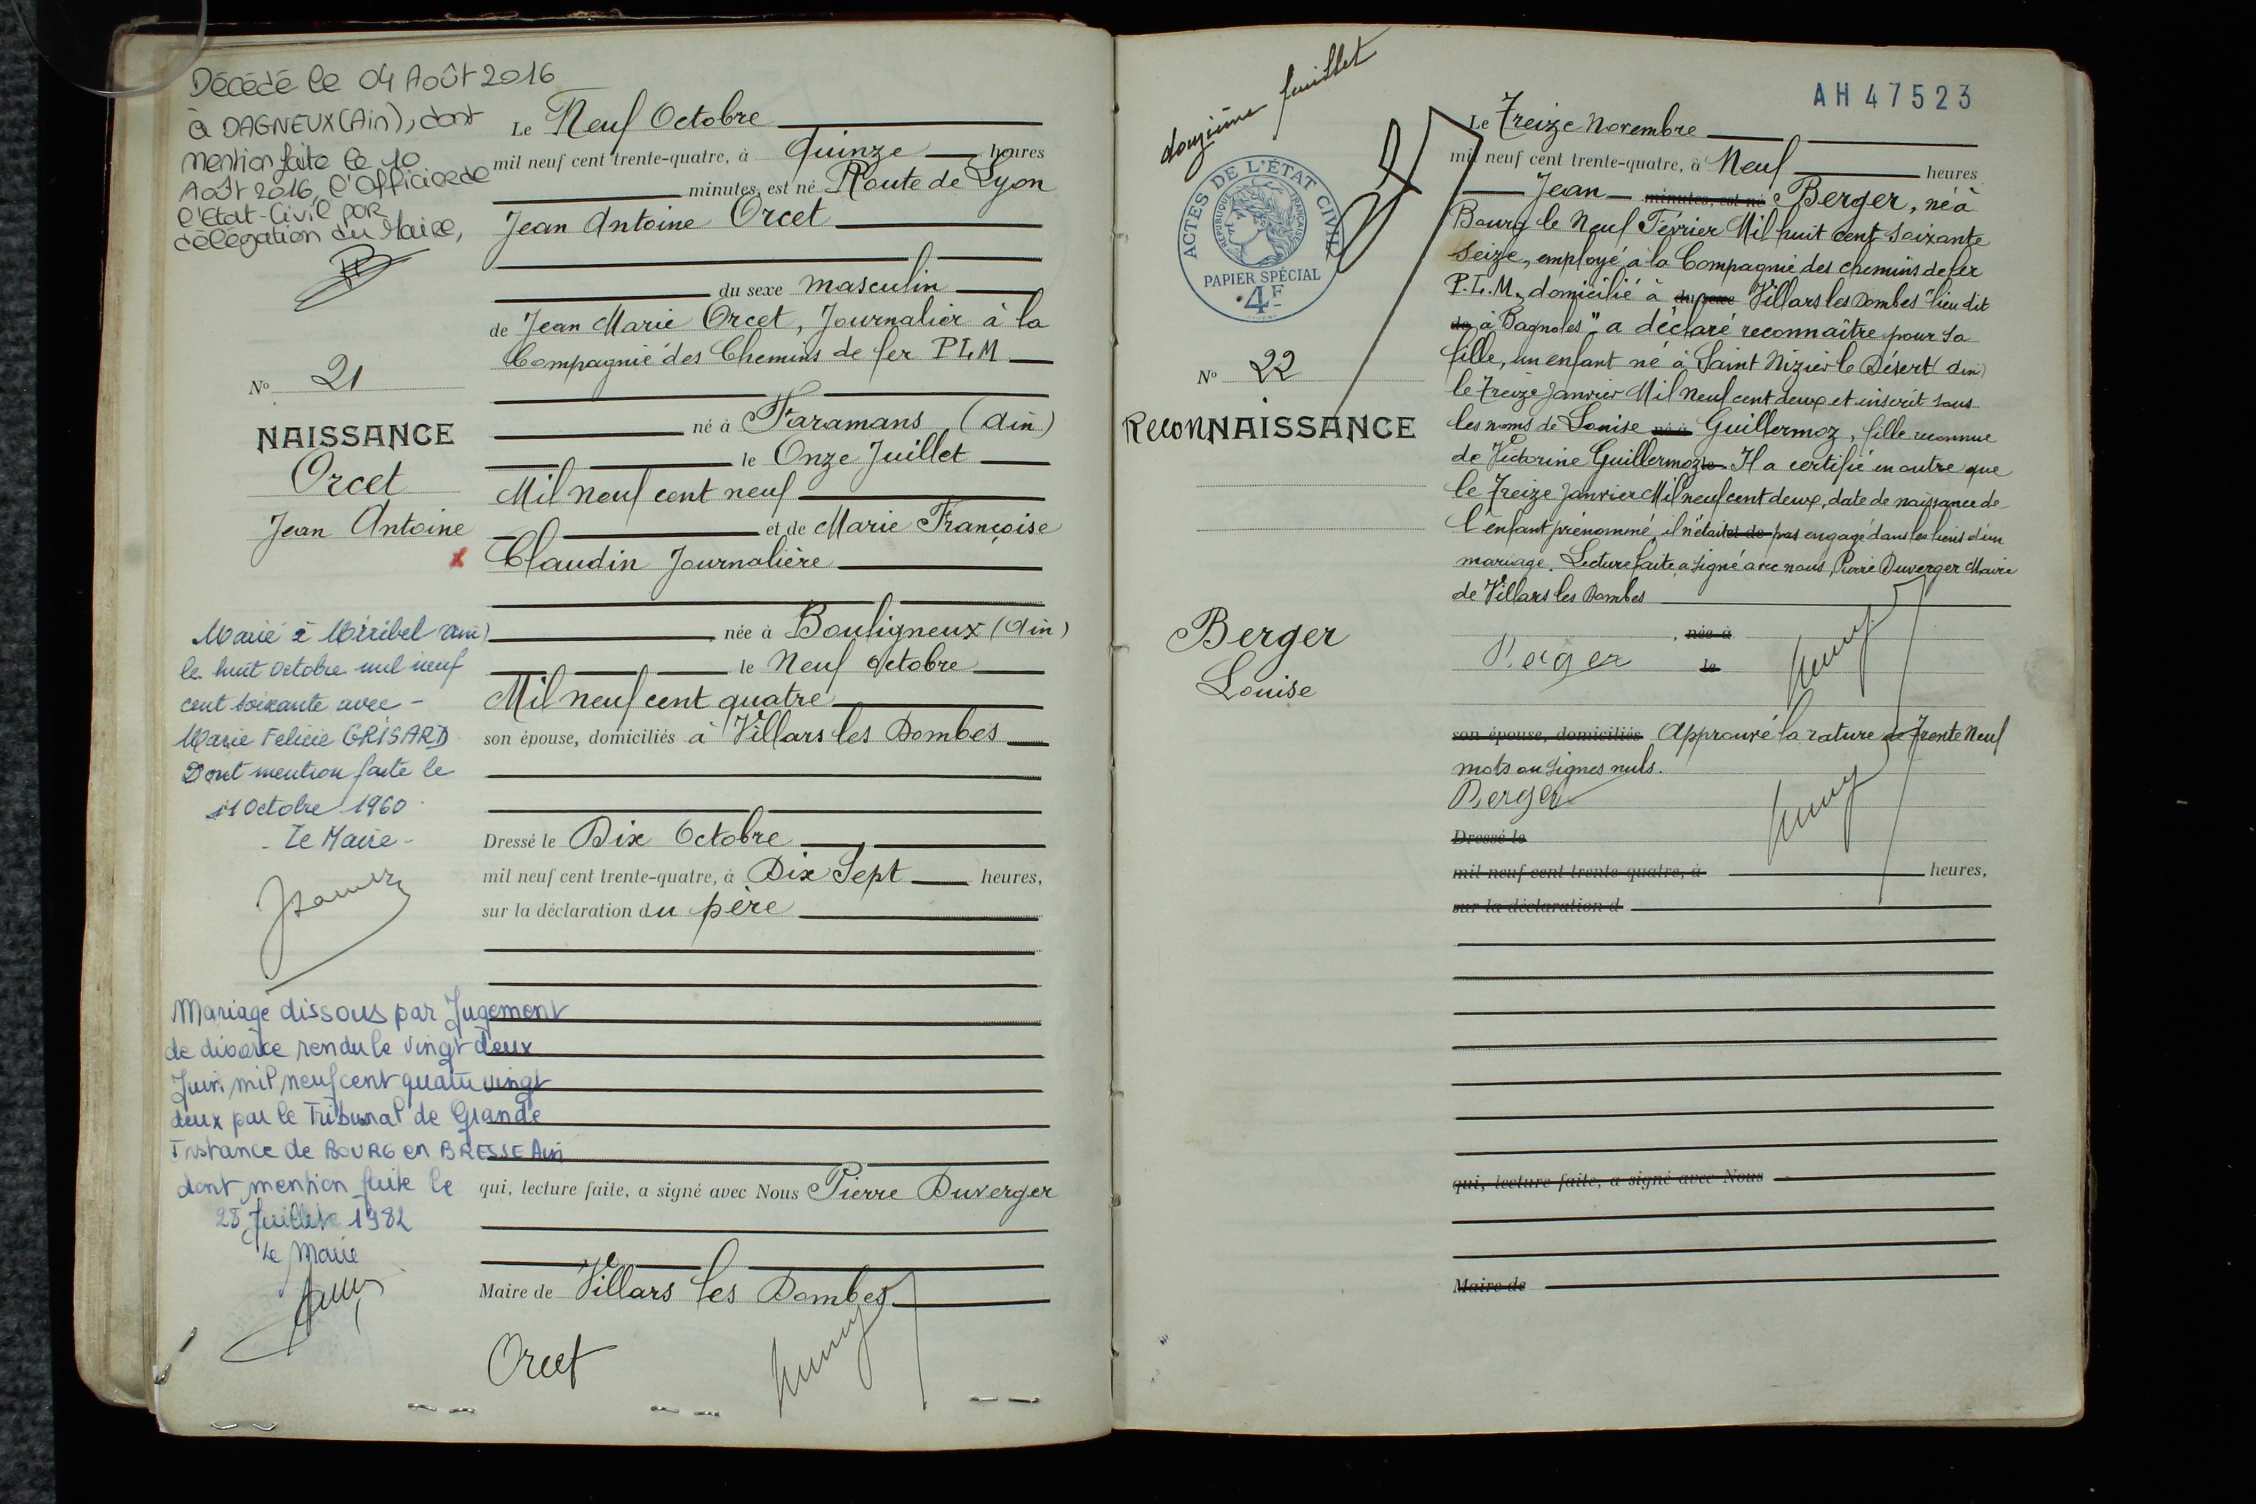 Décédé le 04 Août 2016
à DAGNEUX (Ain), dont
mention faite le 10
Août 2016, l'Officier de
l'Etat-Civil par
délégation du Maire,
N° 21
NAISSANCE
Orcet
Jean Antoine
x
Marié à Miribel (Ain)
le huit octobre mil neuf
cent soixante avec -
Marie Felicie GRISARD
Dont mention faite le
11 Octobre 1960.
- Le Maire -
Mariage dissous par Jugement
de divorce rendu le vingt deux
Juin mil neuf cent quatre vingt
deux par le Tribunal de Grande
Instance de BOURG en BRESSE Ain
dont mention faite le
28 Juillet 1982
Le Maire
Le Neuf Octobre
mil neuf cent trente-quatre, à Quinze heures
minutes, est né Route de Lyon
Jean Antoine Orcet
du sexe masculin
de Jean Marie Orcet, Journalier à la
Compagnie des Chemins de fer PLM
né à Faramans (Ain)
le Onze Juillet
Mil neuf cent neuf
et de Marie Françoise
Claudin Journalière
née à Bouligneux (Ain)
le Neuf Octobre
Mil neuf cent quatre
son épouse, domiciliés à Villars les Dombes
Dressé le Dix Octobre
mil neuf cent trente-quatre, à Dix Sept heures,
sur la déclaration du père
qui, lecture faite, a signé avec Nous Pierre Duverger
Maire de Villars les Dombes
Orcet
douzième feuillet
ACTES DE L'ÉTAT CIVIL
RÉPUBLIQUE FRANÇAISE
PAPIER SPÉCIAL
4F
N° 22
ReconNAISSANCE
Berger
Louise
AH47523
Le Treize Novembre
mil neuf cent trente-quatre, à Neuf heures
Jean minutes, est né Berger, né à
Bourg le Neuf Février Mil huit cent soixante
Seize, employé à la Compagnie des chemins de fer
P.L.M., domicilié à du sexe Villars les Dombes "lieu dit
de à Bagnoles" a déclaré reconnaître pour sa
fille, un enfant né à Saint Nizier le Désert (Ain)
le Treize Janvier Mil neuf cent deux et inscrit sous
les noms de Louise né à Guillermoz, fille reconnue
de Victorine Guillermoz le Il a certifié en outre que
le Treize Janvier Mil neuf cent deux, date de naissance de
l'enfant prénommé, il n'était et de pas engagé dans les liens d'un
mariage. Lecture faite a signé avec nous, Pierre Duverger Maire
de Villars les Dombes
née à
Berger le
son épouse, domiciliés Approuvé la rature de Trente Neuf
mots ou signes nuls.
Berger
Dressé le
mil neuf cent trente-quatre, à heures,
sur la déclaration d
qui, lecture faite, a signé avec Nous
Maire de